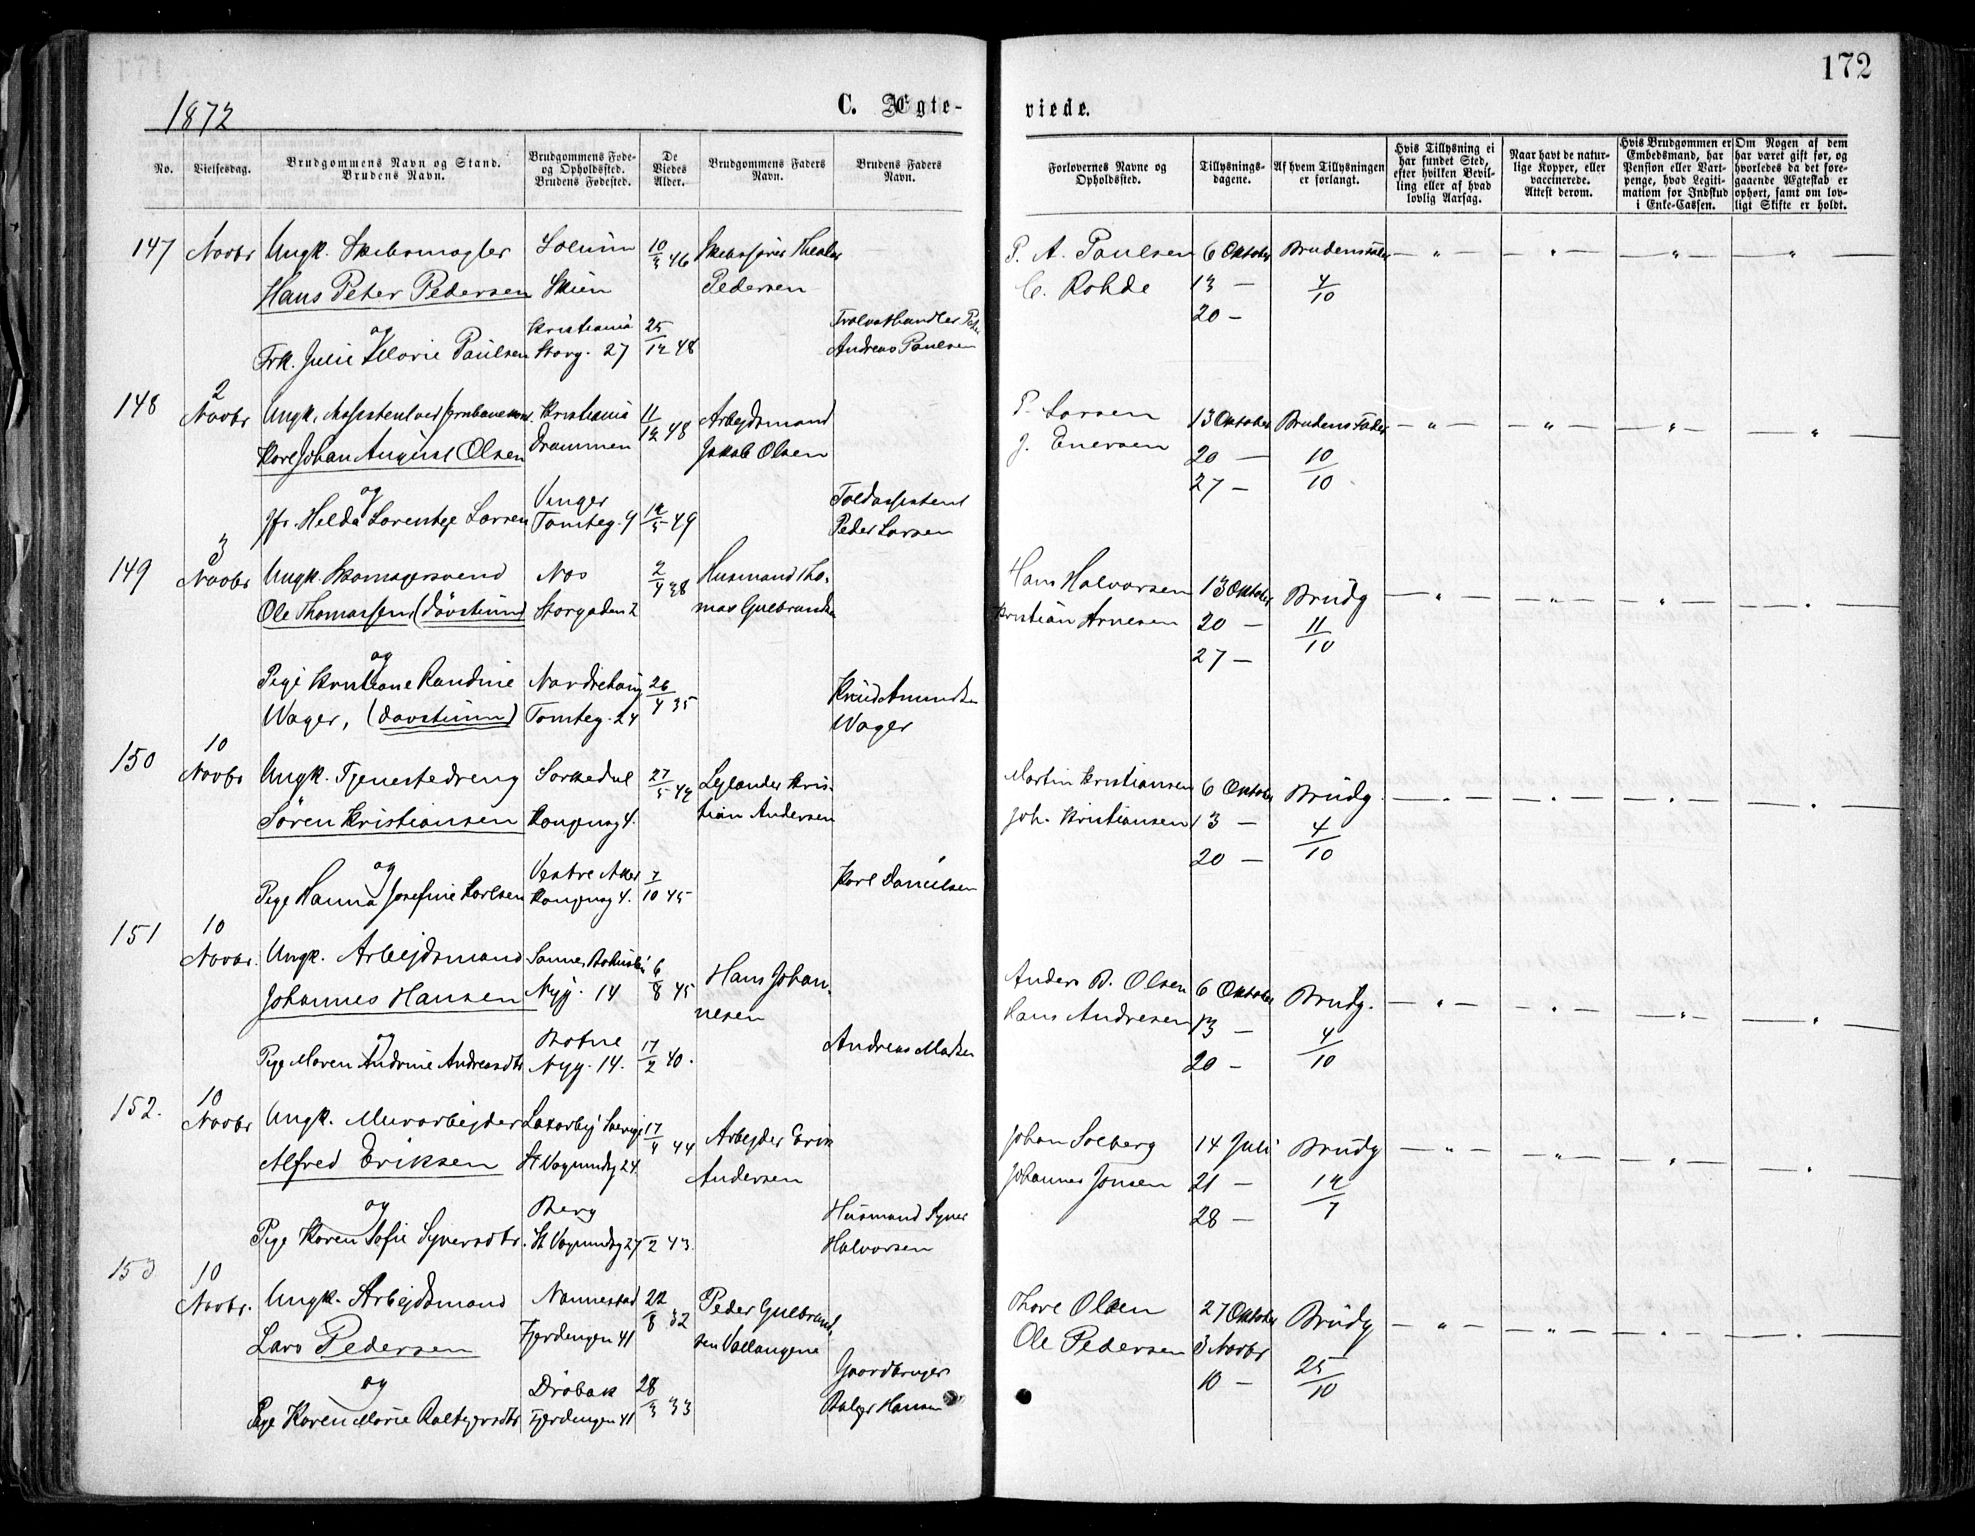 172
1872
C. Ægte-
viede.
No.
Vielsesdag.
Brudgommens Navn og Stand.
Brudens Navn.
Brudgommens Føde-
og Opholdssted.
Brudens Fødested.
De
Viedes
Alder.
Brudgommens Faders
Navn.
Brudens Faders
Navn.
Forlovernes Navne og
Opholdssted.
Tillysnings-
dagene.
Af hvem Tillysningen
er forlangt.
Hvis Tillysning ei
har fundet Sted,
efter hvilken Bevil-
ling eller af hvad
lovlig Aarsag.
Naar havt de natur-
lige Kopper, eller
vaccinerede.
Attest derom.
Hvis Brudgommen er
Embedsmand, har
Pension eller Vart-
penge, hvad Legiti-
mation for Indskud
i Enke-Cassen.
Om Nogen af dem
har været gift før, og
hvorledes da det fore-
gaaende Ægteskab er
ophørt, samt om lov-
ligt Skifte er holdt.
147 Novbr Ungk. Skibsmægler Solum 10/3 46 Pedersen
Hans Peter Pedersen Skien
og
Frk. Julie Marie Paulsen
Kristiania
Storg. 27
25/12 48
Andreas Paulsen
P. A. Paulsen
C. Rohde
6 Oktober
13 —
20 —
Brudens Fader
4/10
148 2 Novbr Ungk. Assistent ved
Karl Johan August Olsen
Kristiania
Drammen
11/12 48
Arbejdsmand
Jakob Olsen
og
Jfr. Helda Larentse Larsen
Vinger
Tomteg. 9
12/5 49
Toldassistent
Peder Larsen
P. Larsen
J. Enersen
13 Oktober
20 —
27 —
Brudens Fader
10/10
149 3 Novbr Ungk. Skomagersvend
Ole Thomassen (døvstum)
Nes
Storgaden 2
2/4 38
Husmand Tho-
mas Gulbrandsen
og
Pige Kristiane Randine
Wager, (døvstum)
Norderhoug
Tomteg. 24
26/4 35
Knud Amundsen
Wager
Hans Halvorsen
Kristian Arnesen
13 Oktober
20 —
27 —
Brudg
11/10
150 10 Novbr Ungk. Tjenestedreng
Søren Kristiansen
Sørkedal
27/5 42
Lejlænder Kris-
tian Andersen
og
Pige Hanna Josefine Karlsen
Vestre Aker
7/10 45
Karl Danielsen
Martin Kristiansen
Joh. Kristiansen
6 Oktober
13 —
20 —
Brudg.
4/10
151 10 Novbr. Ungk. Arbejdsmand
Johannes Hansen
Nyg. 14
6/8 45
Hans Johan-
nesen
og
Pige Maren Andrine Andreasdtr
Botne
Nyg. 14.
17/2 40.
Andreas Madsen
Anders B. Olsen
Hans Andresen
6 Oktober
13 —
20 —
Brudg.
4/10
152. 10 Novbr Ungk. Murarbejder
Alfred Eriksen
Sverige
17/4 44
Arbejder Erik
Andersen
og
Pige Karen Sofie Syversdtr.
Berg
2 43.
Husmand Syver
Halvorsen
Johan Solberg
Johannes Jonsen
14 Juli
21 —
28 —
Brudg
12/7
153 10 Novbr. Ungk. Arbejdsmand
Lars Pedersen
Nannestad
Fjerdingen 41
22/8 32
Peder Gulbrand-
sen Vallangene
og
Pige Karen Marie
Drøbak
Fjerdingen 41
28/3 33
Gaardbruger
Hansen
Thore Olsen
Ole Pedersen
27 Oktober
3 Novbr
10 —
Brudg
25/10